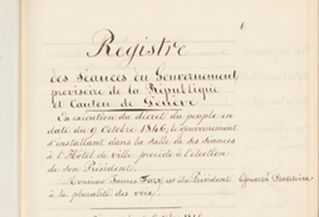 1
Registre
des Séances du Gouvernement
provisoire de la République
et Canton de Genève
En exécution du décret du peuple en
date du 9 Octobre 1846, le gouvernement
s'installant dans la salle de ses séances
à l'Hôtel de ville procède à l'élection
de son Président.
Monsieur James Fazy est élu Président
Provisoire
à la pluralité des voix.